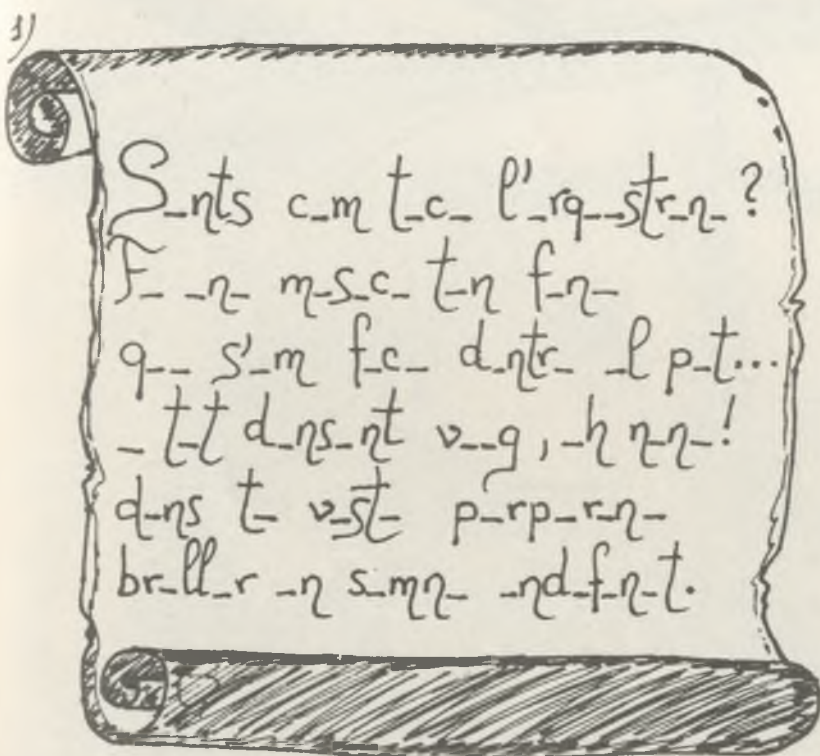 1)
S_nts c_m t_c_ l'_rq__str_n_?
F_ _n_ m_s_c_ t_n f_n_
q__ s'_m f_c_ d_ntr_ _l p_t...
_ t_t d_ns_nt v__g, _h n_n_!
d_ns t_ v_st_ p_rp_r_n_
br_ll_r _n s_mn_ _nd_f_n_t.